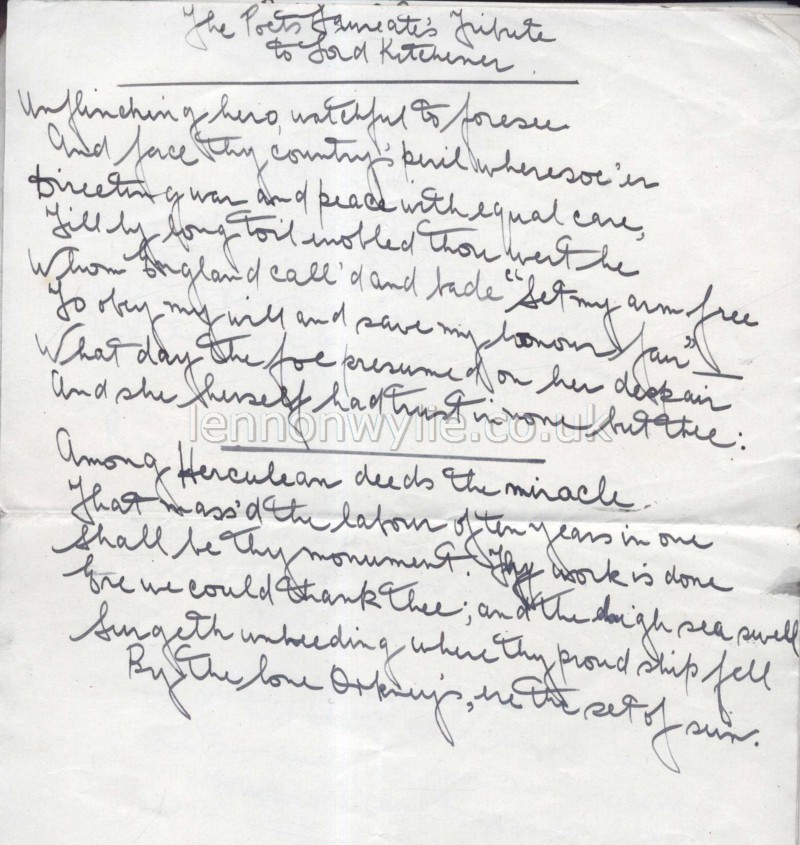 The Poets Laureate's Tribute
to Lord Kitchener
Unflinching hero, watchful to foresee
And face thy country's peril wheresoe'er
Directing war and peace with equal care,
Till by long toil enobled thou wert he
Whom England call'd and bade "Set my arm free
To obey my will and save my honour fair" —
What day the foe presumed on her despair
And she herself had trust in none but thee:
lennonwylie.co.uk
Among Herculean deeds the miracle
That mass'd the labour of ten years in one
Shall be thy monument. Thy work is done
Ere we could thank thee; and the high sea swell
Surgeth unheeding where thy proud ship fell
By the lone Orkneys, ere the set of sun.